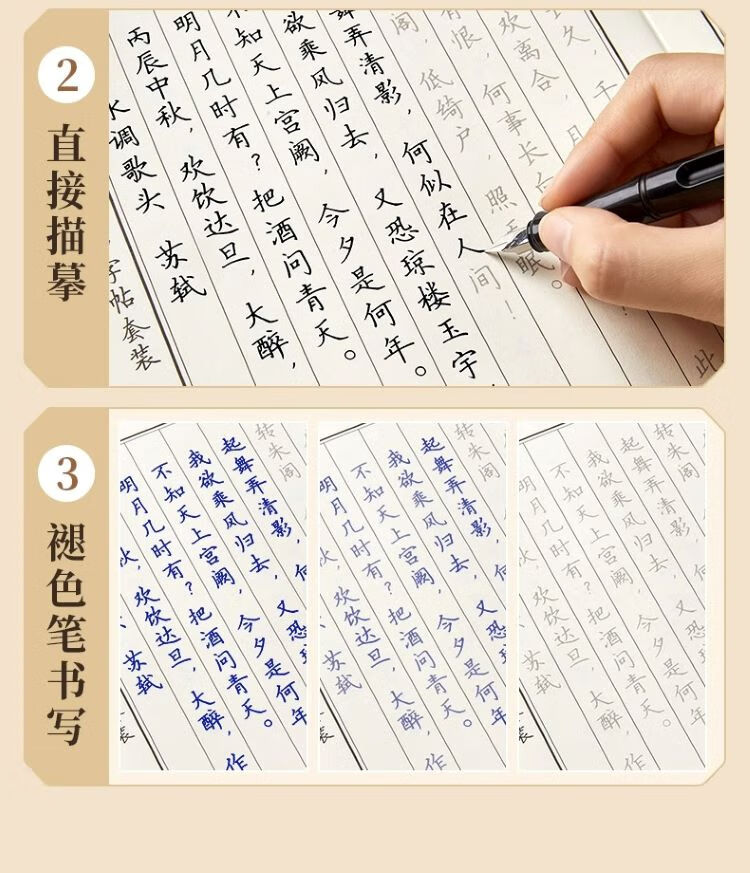 2
直接描摹
字帖套装
水调歌头 苏轼
丙辰中秋,欢饮达旦,大醉,
明月几时有?把酒问青天。
不知天上宫阙,今夕是何年。
欲乘风归去,又恐琼楼玉宇,
舞弄清影,何似在人间!
阁,低绮户,照 眠。
有恨,何事长向
欢离合,
月
此
久,千
3
褪色笔书写
装
苏轼
秋,欢饮达旦,大醉,作
明月几时有?把酒问青天。
不知天上宫阙,今夕是何年
我欲乘风归去,又恐
起舞弄清影,何
转朱阁
装
苏轼
秋,欢饮达旦,大醉,作
明月几时有?把酒问青天。
不知天上宫阙,今夕是何年
我欲乘风归去,又恐
起舞弄清影,何
转朱阁
装
苏轼
秋,欢饮达旦,大醉,作
明月几时有?把酒问青天。
不知天上宫阙,今夕是何年
我欲乘风归去,又恐
起舞弄清影,何
转朱阁